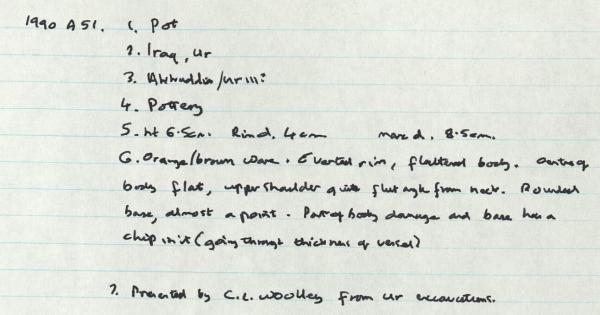 1990 A 51. 1. Pot
2. Iraq, Ur
3. Akkadian/Ur III?
4. Pottery
5. ht 6.5cm. Rim d. 4cm max d. 8.5cm.
6. Orange/brown ware. Everted rim, flattened body. Centre of
body flat, upper shoulder quite flat angle from neck. Rounded
base, almost a point. Part of body damage and base has a
chip in it (going through thickness of vessel)
7. Presented by C.L. Woolley from Ur excavations.